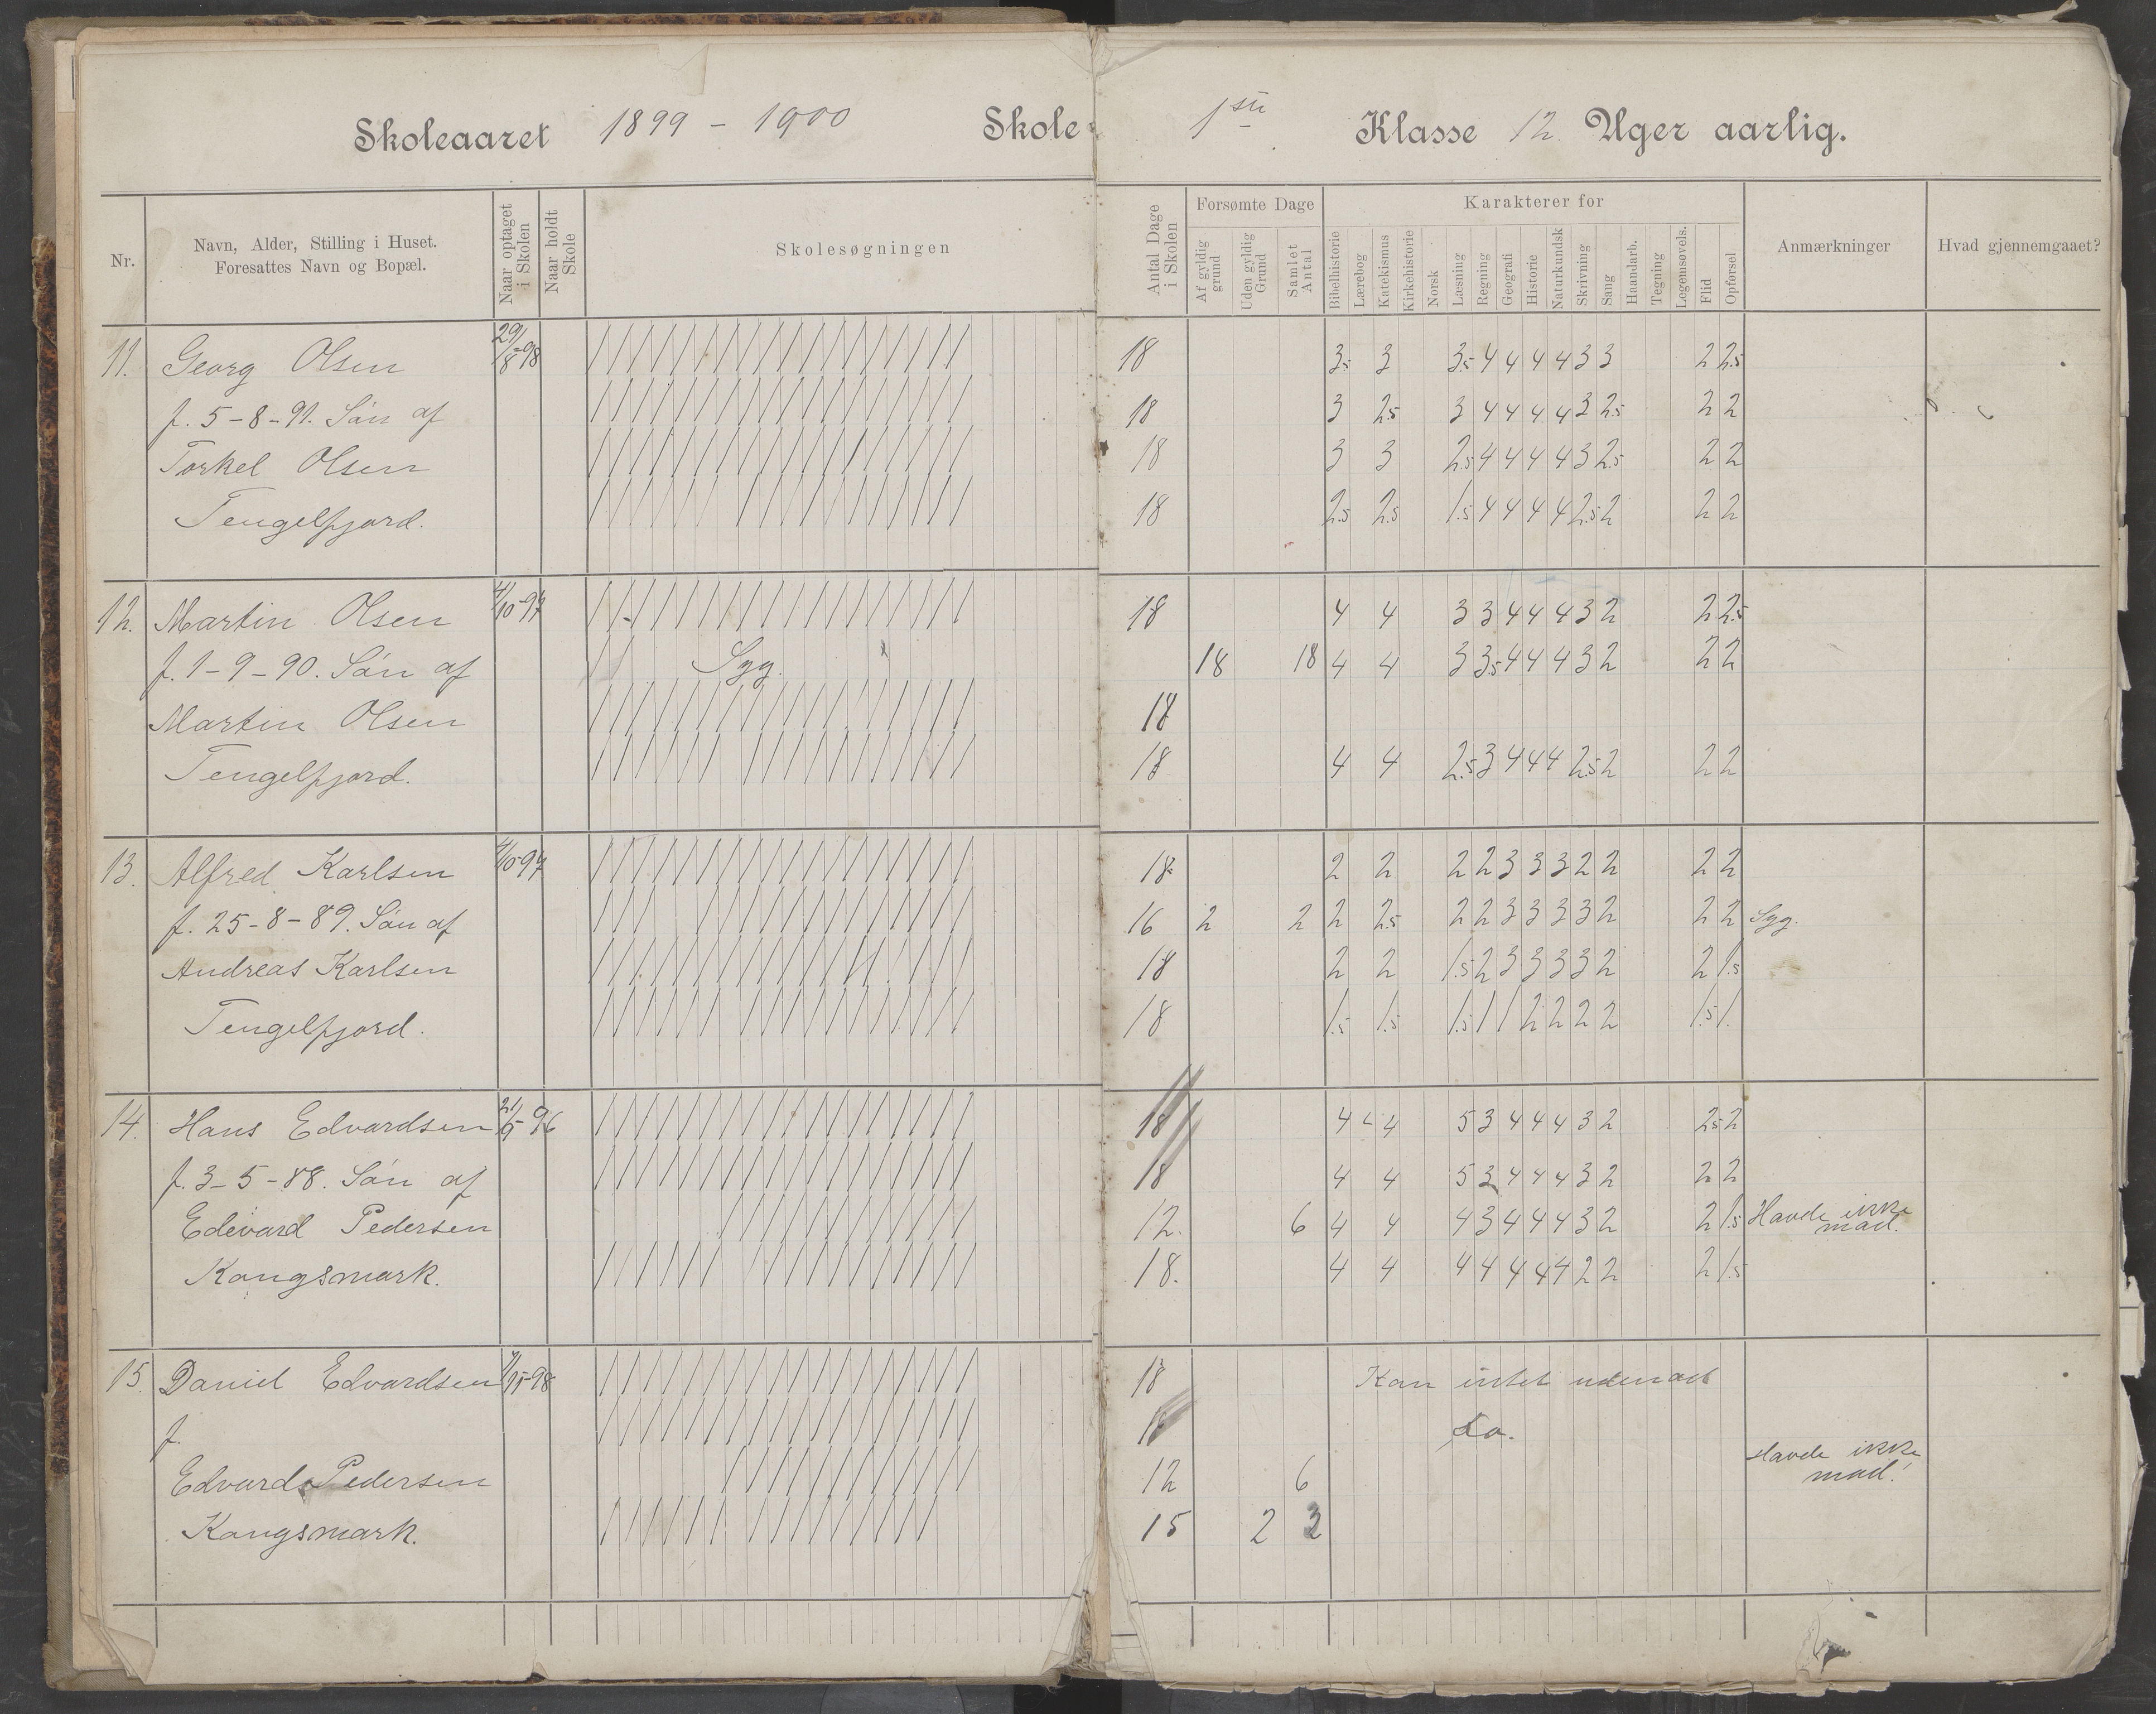 Skoleaaret 1899 - 1900 Skole 1ste Klasse 12 Uger aarlig.
Nr.
Navn, Alder, Stilling i Huset.
Foresattes Navn og Bopæl.
Naar optaget i Skolen
Naar holdt Skole
Skolesøgningen
Antal Dage i Skolen
Forsømte Dage
Af gyldig grund
Uden gyldig Grund
Samlet Antal
Karakterer for
Bibelhistorie
Lærebog
Katekismus
Kirkehistorie
Norsk
Læsning
Regning
Geografi
Historie
Naturkundsk
Skrivning
Sang
Haandarb.
Tegning
Legemsøvels.
Flid
Opførsel
Anmærkninger
Hvad gjennemgaaet?
11. Georg Olsen 29/8-98 18 3.5 3 3.5 4 4 4 4 3 3 2 2.5
f. 5-8-91. Søn af 18 3 2.5 3 4 4 4 4 3 2.5 2 2
Torkel Olsen 18 3 3 2.5 4 4 4 4 3 2.5 2 2
Tengelfjord. 18 2.5 2.5 1.5 4 4 4 4 2.5 2 2 2
12. Martin Olsen 4/10-97 18 4 4 3 3 4 4 4 3 2 2 2.5
f. 1-9-90. Søn af Syg. 18 18 4 4 3 3.5 4 4 4 3 2 2 2
Martin Olsen 18
Tengelfjord. 18 4 4 2.5 3 4 4 4 2.5 2 2 2
13. Alfred Karlsen 4/10-97 18 2 2 2 2 3 3 3 2 2 2 2
f. 25-8-89. Søn af 16 2 2 2 2.5 2 2 3 3 3 3 2 2 2 Syg.
Andreas Karlsen 18 2 2 1.5 2 3 3 3 3 2 2 1.5
Tengelfjord. 18 1.5 1.5 1.5 1 1 2 2 2 2 1.5 1.
14. Hans Edvardsen 21/9-96 18 4 4 5 3 4 4 4 3 2 2.5 2
f. 3-5-88. Søn af 18 4 4 5 3 4 4 4 3 2 2 2
Edevard Pedersen 12. 6 4 4 4 3 4 4 4 3 2 2 1.5 Havde ikke mad.
Kongsmark. 18. 4 4 4 4 4 4 4 2 2 2 1.5
15. Daniel Edvardsen 18 Kan intet udenad
f. 18 Do.
Edvard Pedersen 12 6 Havde ikke mad!
Kongsmark. 15 2 3